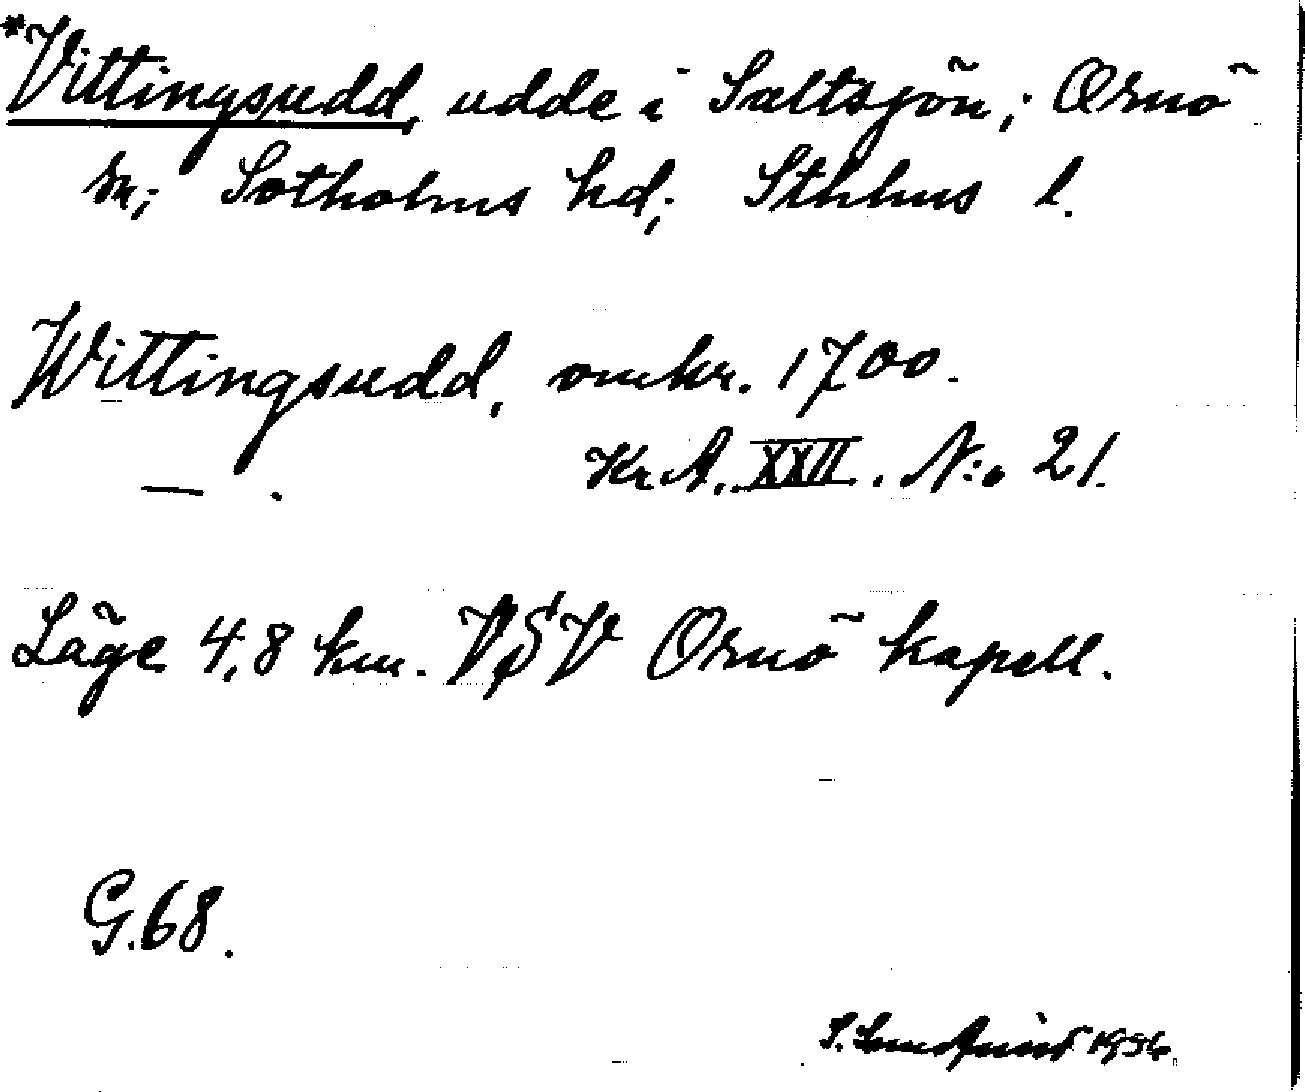 *Vittingsudd, udde i Saltsjön; Ornö
sn; Sotholms hd; Sthlms l.
Wittingsudd, omkr. 1700.
KrA. XXII. N:o 21.
Läge 4,8 km. VSV Ornö kapell.
G.68.
S. Lundqvist 1936